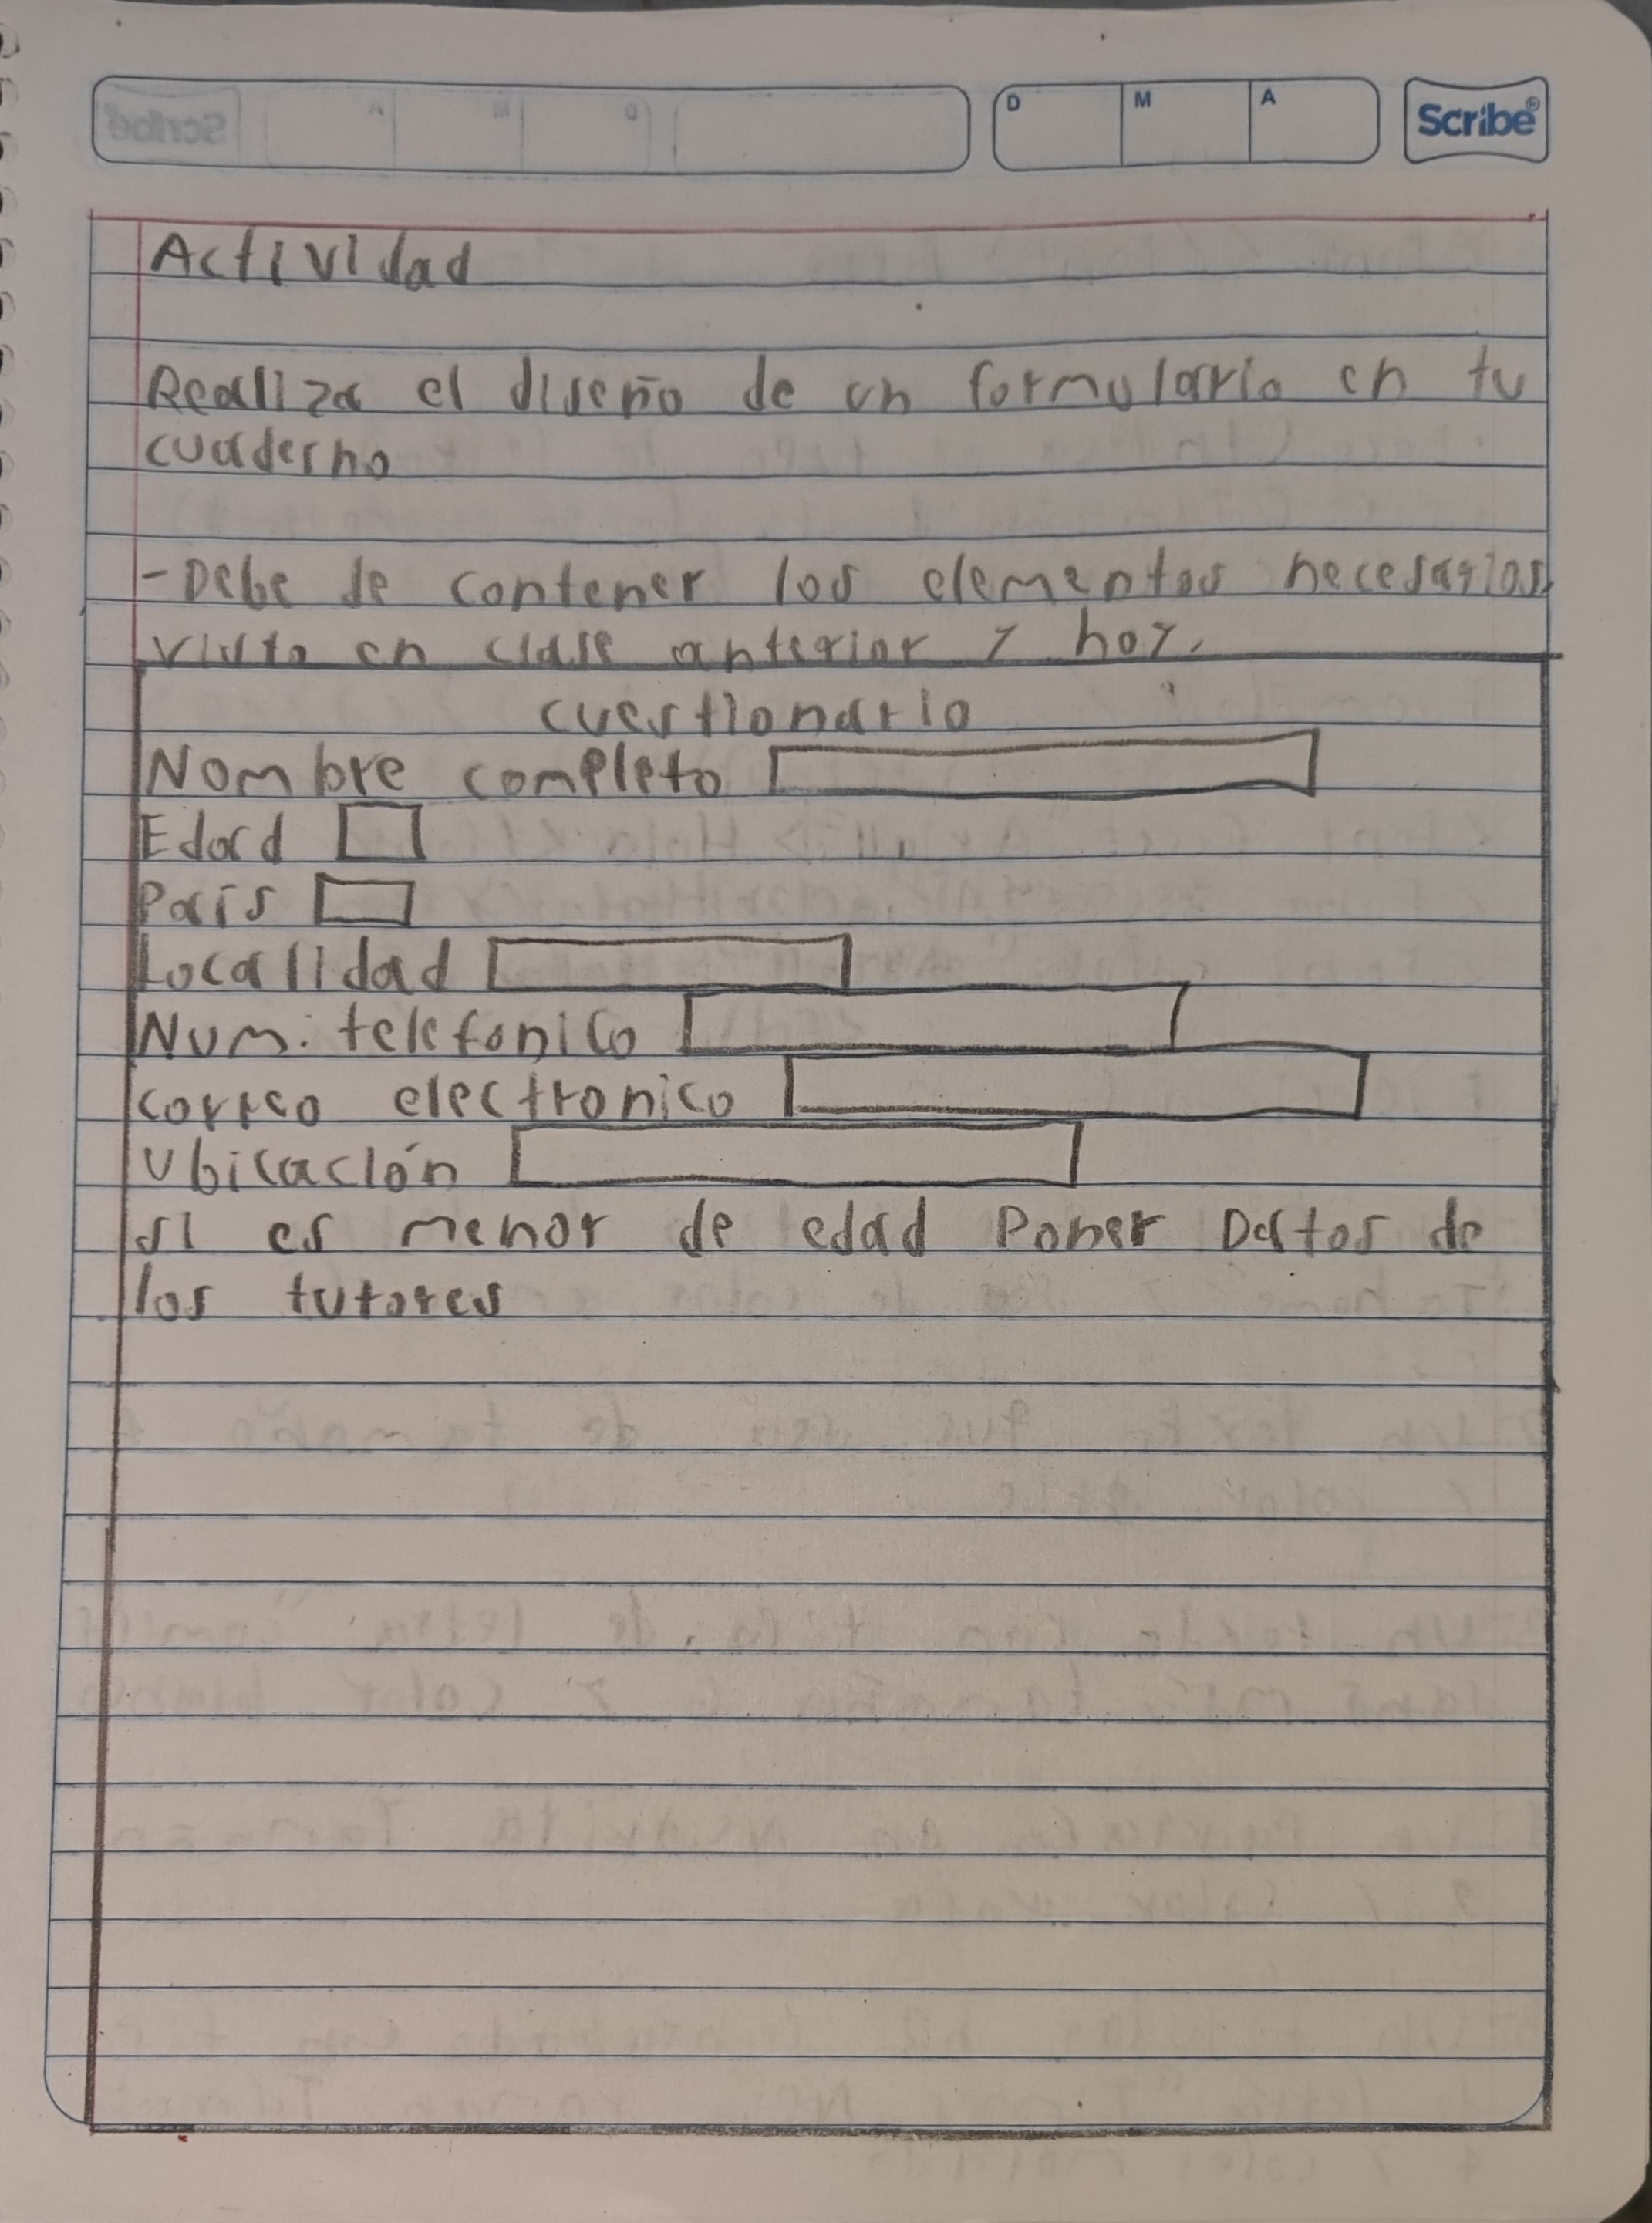 D M A Scribe®
Actividad
Realiza el diseño de un formulario en tu
cuaderno
-Debe de contener los elementos necesarios
visto en clase anterior y hoy.
cuestionario
Nombre completo
Edad
País
Localidad
Num. telefonico
correo electronico
Ubicación
si es menor de edad Poner Datos de
los tutores